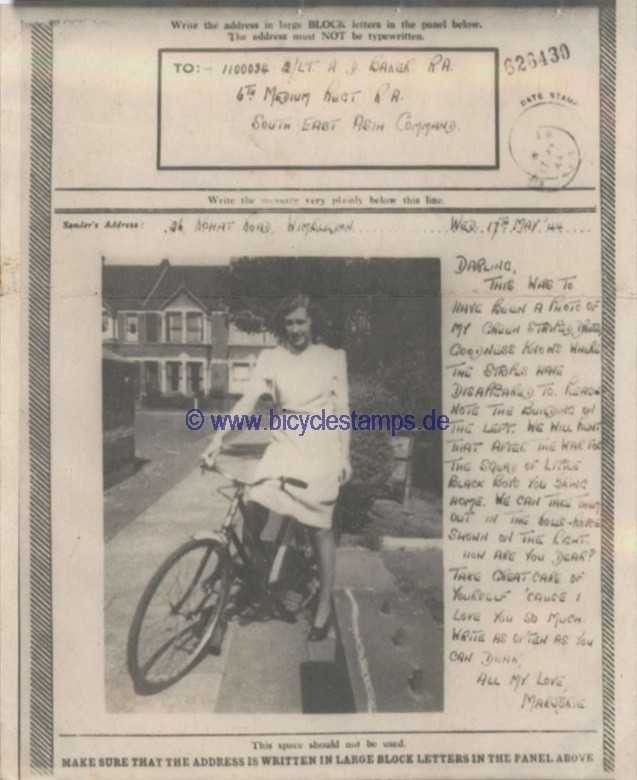 Write the address in large BLOCK letters in the panel below.
The address must NOT be typewritten.
TO:- 1100036 2/LT. A. J. BAKER R.A.
6TH MEDIUM REGT R.A.
SOUTH EAST ASIA COMMAND.
626430
DATE STAMP
Write the message very plainly below this line.
Sender's Address: ROAD, WIMBLEDON WED. 17TH MAY '44
DARLING,
THIS WAS TO
HAVE BEEN A PHOTO OF
MY GREEN STRIPED
GOODNESS KNOWS WHERE
THE STRIPES HAVE
DISAPPEARED TO. PLEASE
NOTE THE BUILDING ON
THE LEFT. WE WILL
THAT AFTER THE WAR FOR
THE SQUAD OF LITTLE
BLACK BOYS YOU BRING
HOME. WE CAN TAKE THEM
OUT IN THE
SHOWN ON THE RIGHT.
HOW ARE YOU DEAR?
TAKE GREAT CARE OF
YOURSELF 'CAUSE I
LOVE YOU SO MUCH.
WRITE AS OFTEN AS YOU
CAN
ALL MY LOVE,
MARJORIE
© www.bicyclestamps.de
This space should not be used.
MAKE SURE THAT THE ADDRESS IS WRITTEN IN LARGE BLOCK LETTERS IN THE PANEL ABOVE